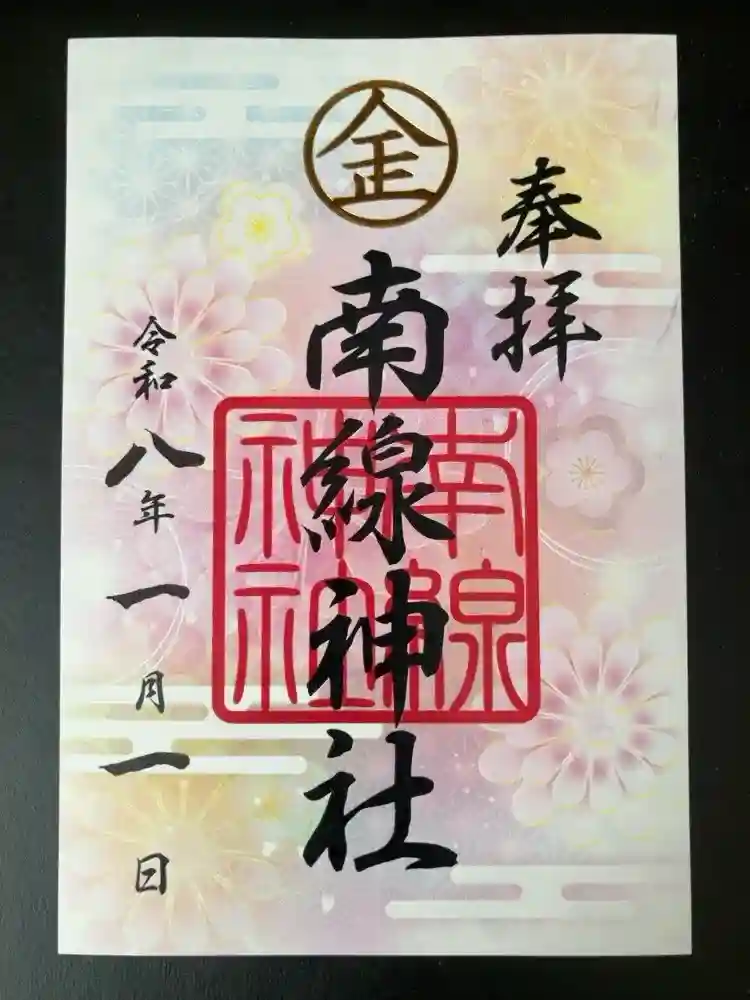 奉拝
金
南線神社
南線神社
令和八年一月一日